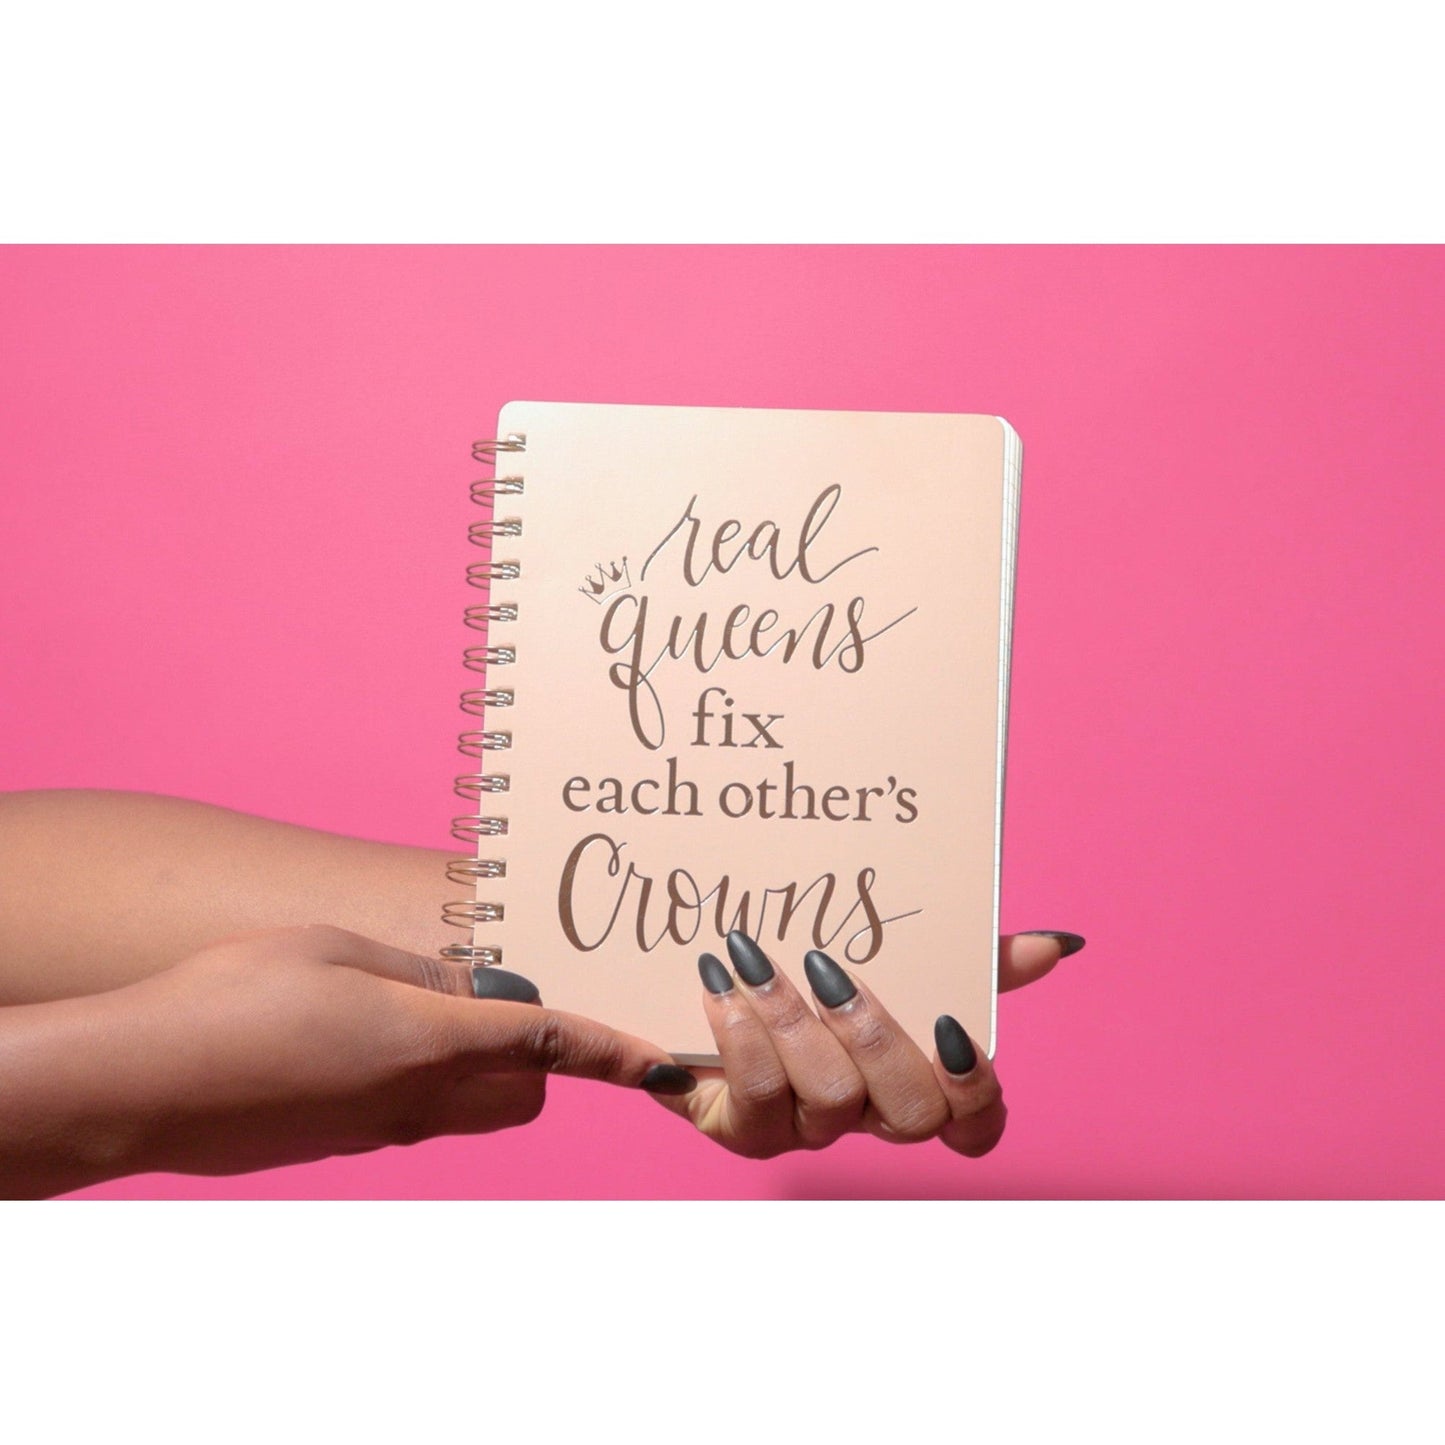 real
queens
fix
each other's
Crowns